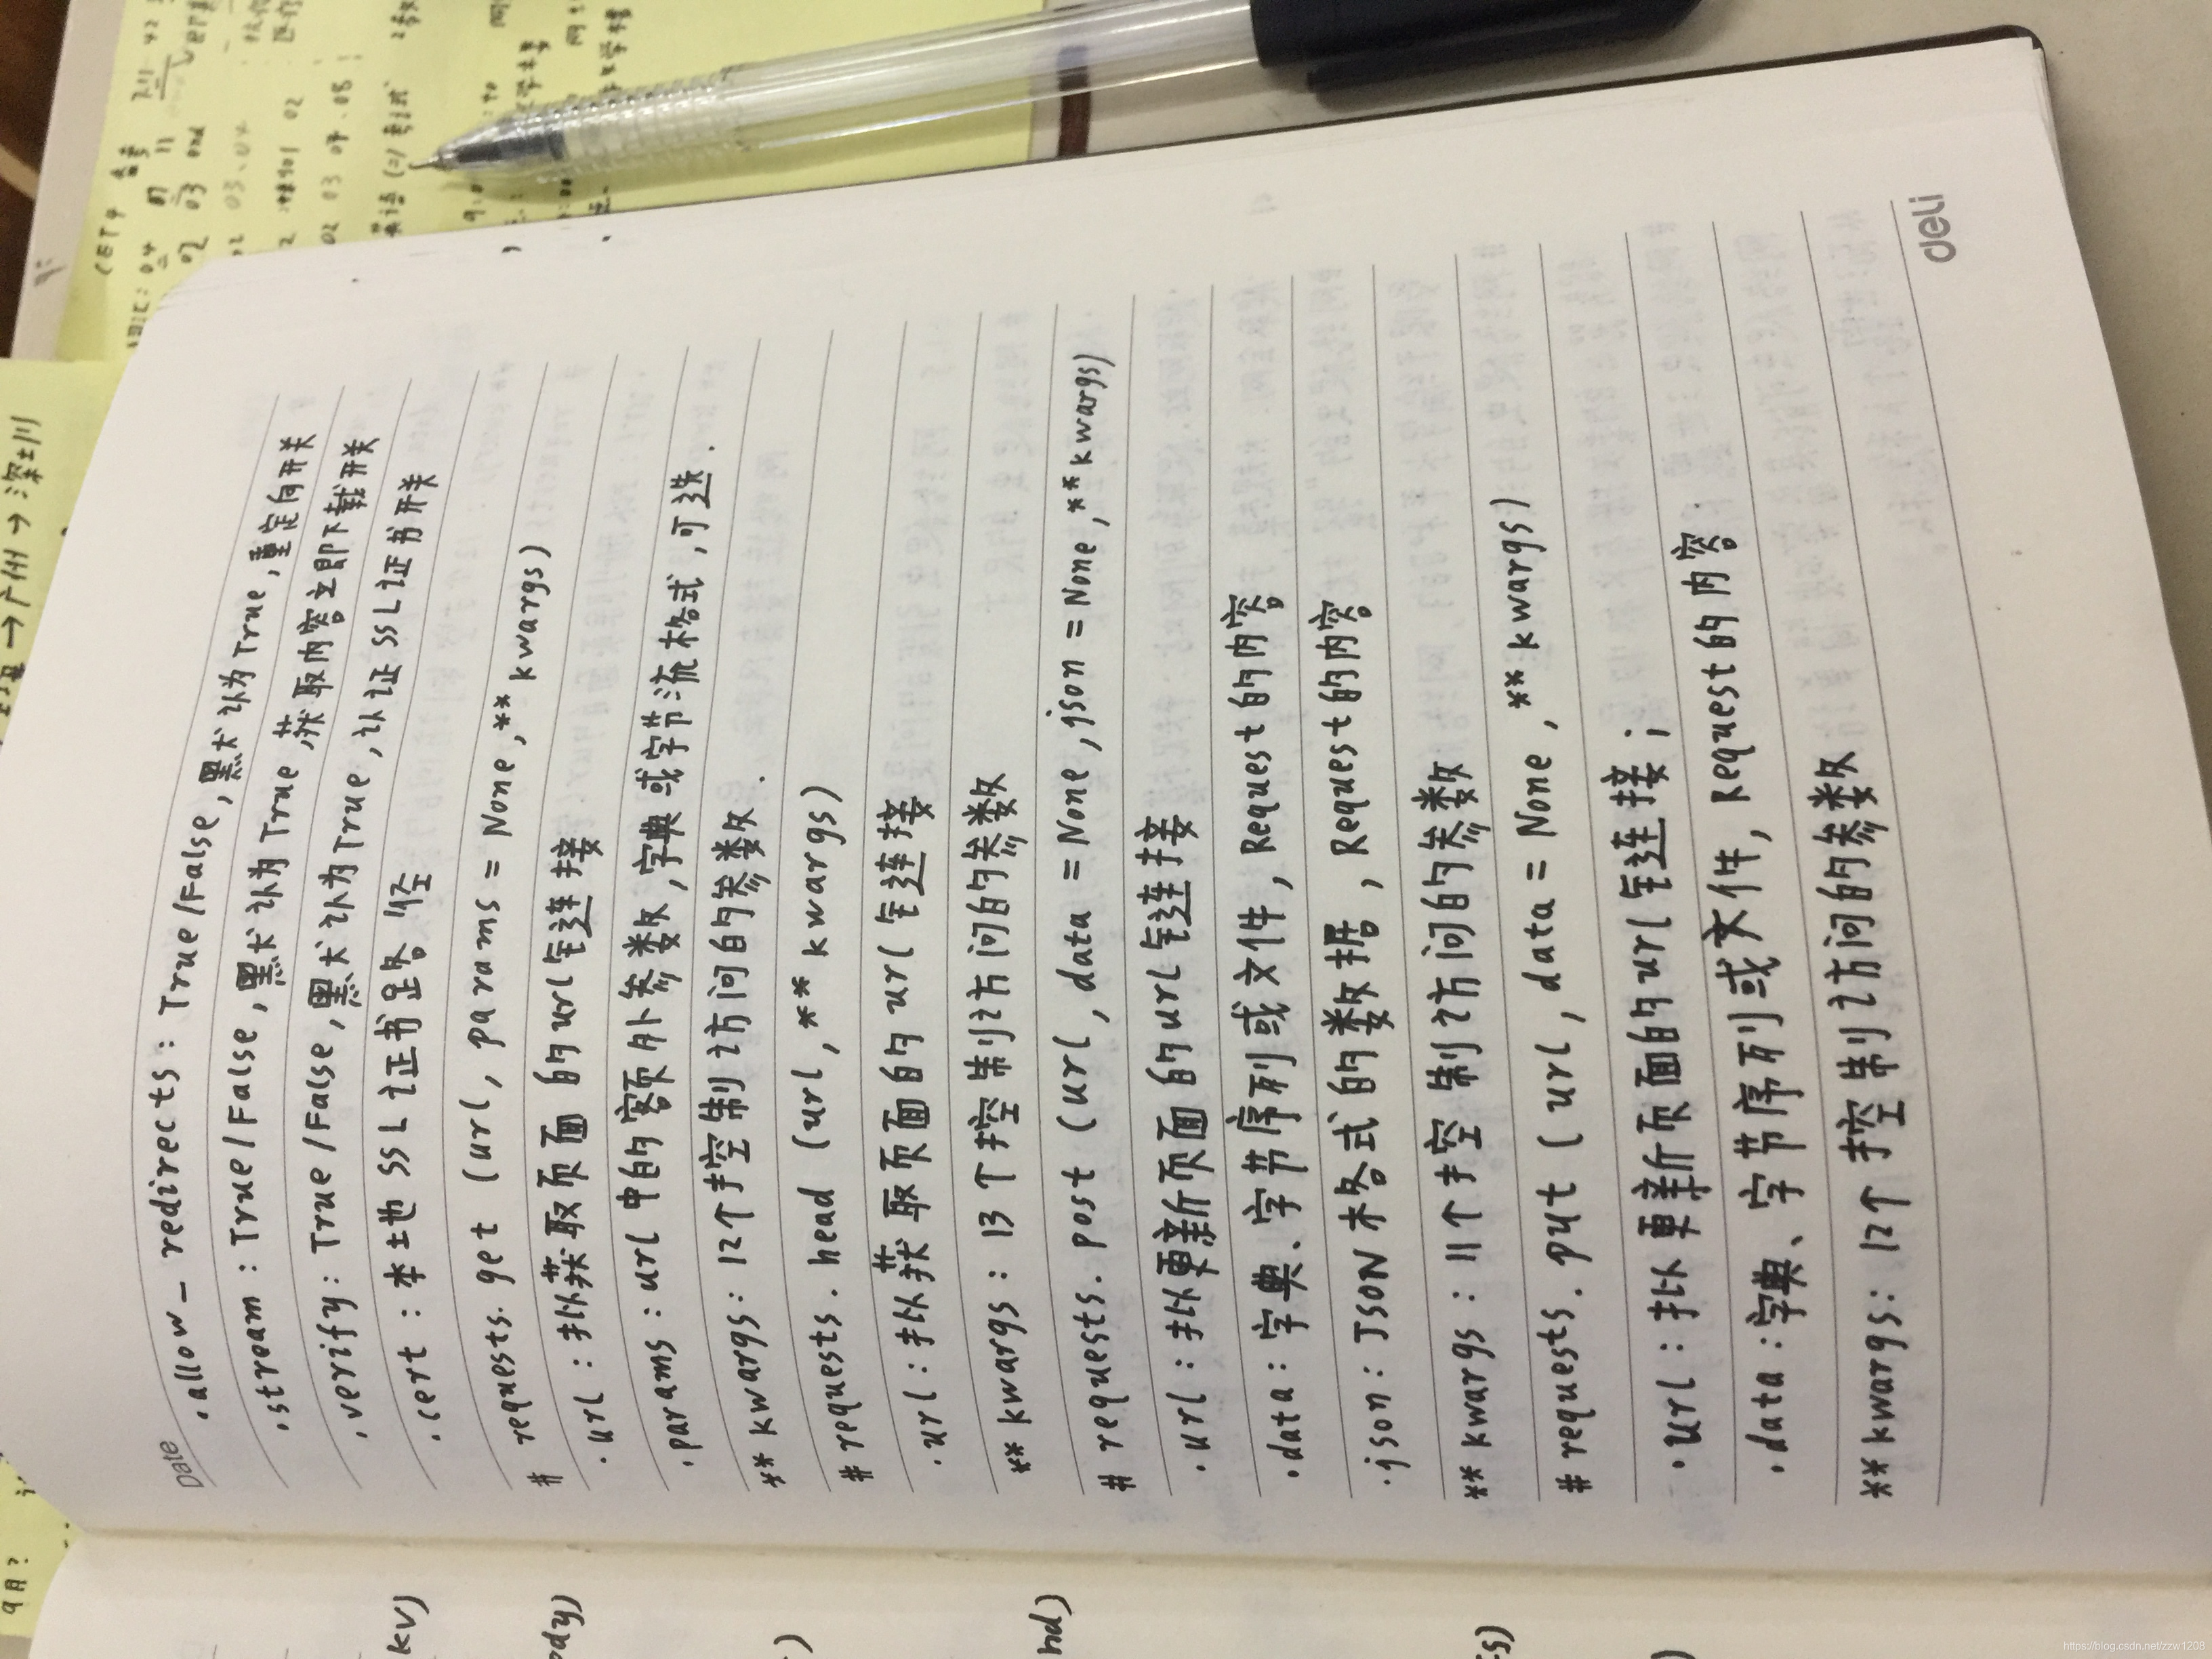 Date
·allow_redirects: True/False,默认为True,重定向开关
·stream: True/False,默认为True,获取内容立即下载开关
·verify: True/False,默认为True,认证SSL证书开关
·cert: 本地SSL证书路径
# requests.get (url, params = None, **kwargs)
·url: 拟获取页面的url链接
·params: url中的额外参数,字典或字节流格式,可选.
**kwargs: 12个控制访问的参数.
# requests.head (url, **kwargs)
·url: 拟获取页面的url链接
**kwargs: 13个控制访问的参数
# requests.post (url, data = None, json = None, **kwargs)
·url: 拟更新页面的url链接
·data: 字典、字节序列或文件, Request的内容
·json: JSON格式的数据, Request的内容
**kwargs: 11个控制访问的参数
# requests.put (url, data = None, **kwargs)
·url: 拟更新页面的url链接;
·data: 字典、字节序列或文件, Request的内容.
**kwargs: 12个控制访问的参数
deli
kv)
ody)
)
hd)
s)
)
CET4
02 03 07.08
→广州→深圳
9月?
https://blog.csdn.net/zzw1208